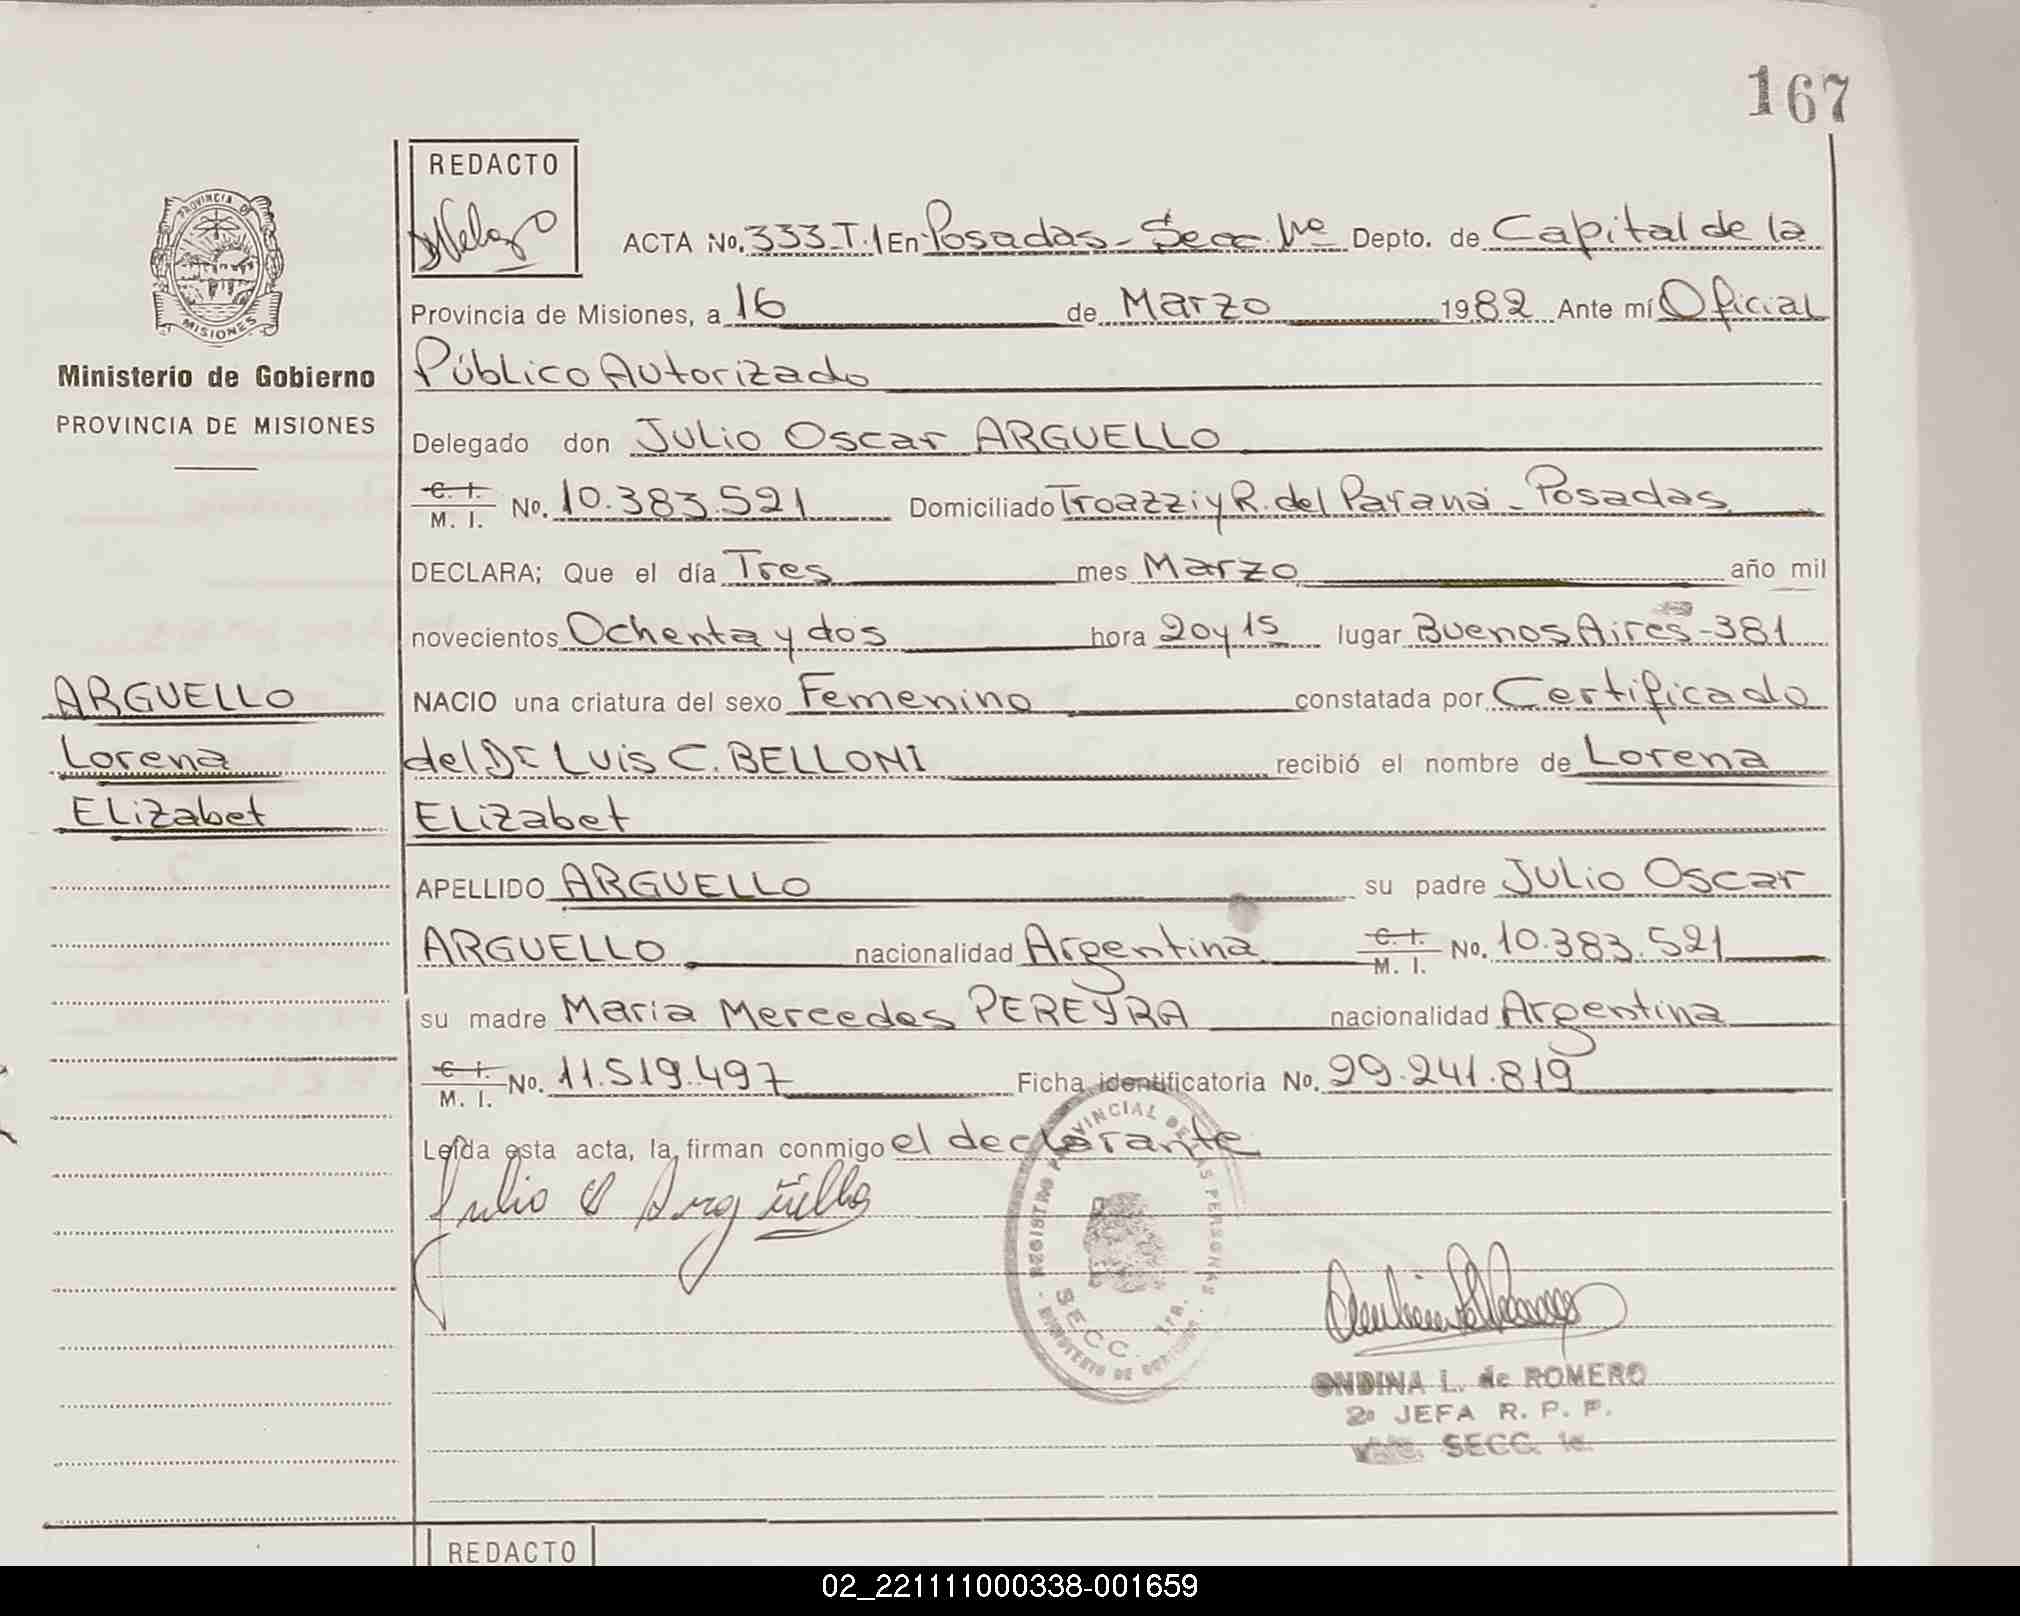 167
REDACTO
PROVINCIA DE
MISIONES
Ministerio de Gobierno
PROVINCIA DE MISIONES
ACTA No. 333-T.1 En Posadas - Secc. 1ra Depto. de Capital de la
Provincia de Misiones, a 16 de Marzo 1982 Ante mí Oficial
Público Autorizado
Delegado don Julio Oscar ARGUELLO
C. I.
M. I. No. 10.383.521 Domiciliado Troazzi y R. del Paraná - Posadas
DECLARA; Que el día Tres mes Marzo año mil
novecientos Ochenta y dos hora 20 y 15 lugar Buenos Aires - 381
ARGUELLO
Lorena
Elizabet
NACIO una criatura del sexo Femenino constatada por Certificado
del Dr Luis C. BELLONI recibió el nombre de Lorena
Elizabet
APELLIDO ARGUELLO su padre Julio Oscar
ARGUELLO nacionalidad Argentina C. I. M. I. No. 10.383.521
su madre Maria Mercedes PEREYRA nacionalidad Argentina
C. I.
M. I. No. 11.519.497 Ficha identificatoria No. 29.241.819
Leída esta acta, la firman conmigo el declarante
Julio O Argüello
REGISTRO PROVINCIAL DE LAS PERSONAS
SECC. 1ra.
MINISTERIO DE GOBIERNO
ONDINA L. de ROMERO
2a JEFA R. P. P.
SECC. 1a.
REDACTO
02_221111000338-001659